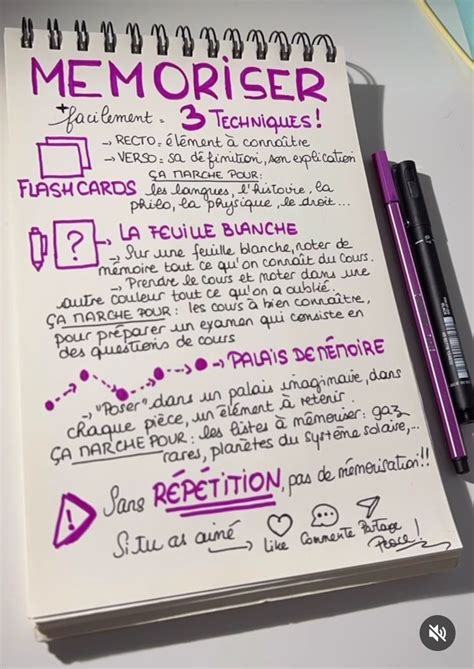 MEMORISER
+ facilement = 3 TECHNIQUES !
→ RECTO = élément à connaître
→ VERSO = sa définition, son explication
ÇA MARCHE POUR :
FLASH CARDS les langues, l'histoire, la
philo, la physique, le droit...
? → LA FEUILLE BLANCHE
→ Sur une feuille blanche, noter de
mémoire tout ce qu'on connaît du cours.
→ Prendre le cours et noter dans une
autre couleur tout ce qu'on a oublié.
ÇA MARCHE POUR : les cours à bien connaître,
pour préparer un examen qui consiste en
des questions de cours
→ PALAIS DE MÉMOIRE
→ "Poser" dans un palais imaginaire, dans
chaque pièce, un élément à retenir.
ÇA MARCHE POUR : les listes à mémoriser : gaz
rares, planètes du système solaire,...
! Sans RÉPÉTITION, pas de mémorisation !!
Si tu as aimé → Like Commente Partage
Peace !